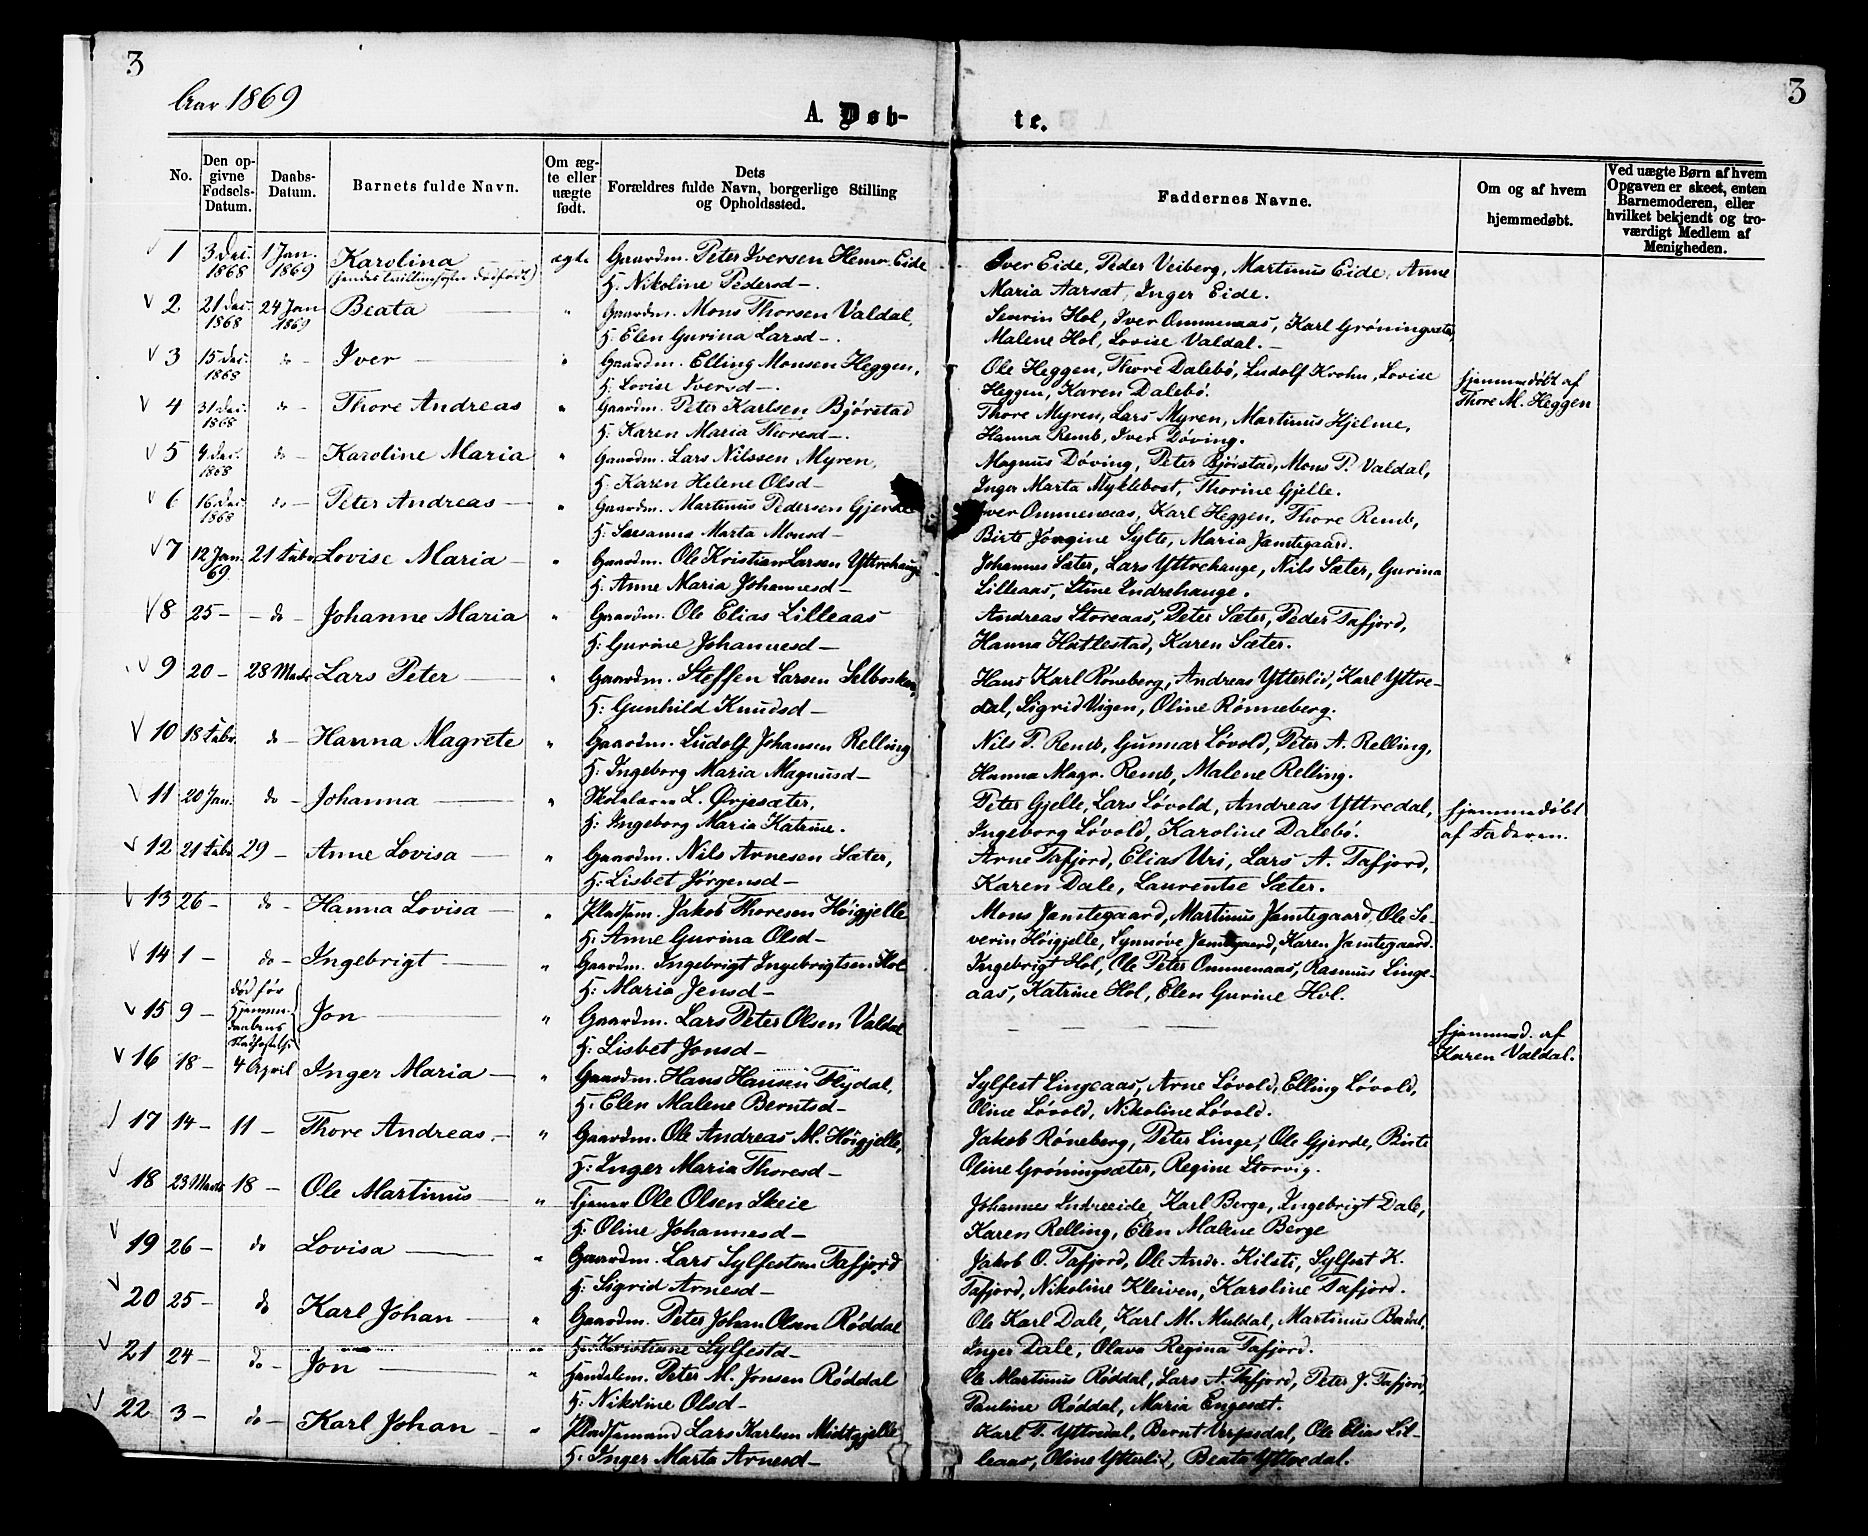 3
3
Aar 1869
A. Døb-
te.
No.
Den op-
givne
Fødsels-
Datum.
Daabs-
Datum.
Barnets fulde Navn.
Om æg-
te eller
uægte
født.
Dets
Forældres fulde Navn, borgerlige Stilling
og Opholdssted.
Faddernes Navne.
Om og af hvem
hjemmedøbt.
Ved uægte Børn af hvem
Opgaven er skeet, enten
Barnemoderen, eller
hvilket bekjendt og tro-
værdigt Medlem af
Menigheden.
1 3 Dec. 1868 1 Jan. 1869 Karolina ægte Gaardm. Peter Iversen Eide Iver Eide, Peder Veiberg, Martinus Eide, Anne
H. Nikoline Pedersd – Maria Aarsæt, Inger Eide.
2 21 Dec. 1868 24 Jan 1869 Beata " Gaardm. Mons Thorsen Valdal, Severin Hol, Iver Ommenaas, Karl Grøningsæter,
H. Elen Gurina Larsd –. Malene Hol, Lovise Valdal. –
3 15 Dec. 1868 do – Iver " Gaardm. Elling Monsen Heggen, Ole Heggen, Thore Dalebø, Ludolf Krohn, Lovise
H. Lovise Iversd –. Heggen, Karen Dalebø. Hjemmedøbt af
Thore M. Heggen
4 31 Dec. 1868 do – Thore Andreas " Gaardm. Peter Karlsen Bjørstad Thore Myren, Lars Myren, Martinus Hjelme,
H. Karen Maria Thoresd –. Hanna Remb, Iver Døving.
5 9 Dec. 1868 do – Karoline Maria " Gaardm. Lars Nilssen Myren, Magnus Døving, Peter Bjørstad, Mons P. Valdal,
H. Karen Helene Olsd – Inger Marta Myklebost, Thorine Gjelle.
6 16 Dec. 1868 do – Peter Andreas – " Gaardm. Martinus Pedersen Gjerde Iver Ommenaas, Karl Heggen, Thore Remb,
H. Marta Monsd – Birte Jørgine Sylte, Maria Jamtegaard.
7 12 Jan. 69 21 Febr Lovise Maria – " Gaardm. Ole Kristian Larsen Yttrehauge Johannes Sæter, Lars Yttrehauge, Nils Sæter, Gurina
H. Anne Maria Johannesd – Lilleaas, Stine Indrehauge.
8 25 – – do – Johanne Maria " Gaardm. Ole Elias Lilleaas Andreas Storeaas, Peter Sæter, Peder Tafjord,
H: Gurine Johannesd – Hanna Hatlestad, Karen Sæter.
9 20 – 28 Marts Lars Peter " Gaardm. Steffen Larsen Selbosken, Hans Karl Røneberg, Andreas Ytterlid, Karl Yttre-
H: Gunhild Knudsd – dal, Sigrid Vigen, Oline Rønneberg.
10 18 Febr. do – Hanna Magrete " Gaardm. Ludolf Johansen Relling Nils P. Remb, Gunnar Løvold, Peter A. Relling,
H: Ingeborg Maria Magnusd – Hanna Magr. Remb, Malene Relling.
11 20 Jan. do – Johanna " Skolelærer L. Ørjesæter, Peter Gjelle, Lars Løvold, Andreas Yttredal, Hjemmedøbt
H: Ingeborg Maria Katrine. Ingeborg Løvold, Karoline Dalebø. af Faderen.
12 21 Febr 29 – Anne Lovisa " Gaardm. Nils Arnesen Sæter, Arne Tafjord, Elias Uri, Lars A. Tafjord,
H: Lisbet Jørgensd – Karen Dale, Laurentse Sæter.
13 26 – do – Hanna Lovisa – " Pladsm. Jakob Thoresen Høigjelle Mons Jamtegaard, Martinus Jamtegaard, Ole Se-
H: Anne Gurina Olsd – verin Høigjelle, Synnøve Jamtegaard, Karen Jamtegaard.
14 1 – do – Ingebrigt " Gaardm. Ingebrigt Ingebrigtsen Hol Ingebrigt Hol, Ole Peter Ommenaas, Rasmus Linge-
H: Maria Jensd – aas, Katrine Hol, Elen Gurine Hol.
15 9 – død før Hjemme- daabens Stadfæstelse Jon " Gaardm. Lars Peter Olsen Valdal – – – – Hjemmed. af
H: Lisbet Jonsd – Karen Valdal.
16 18 – 4 April Inger Maria – " Gaardm. Hans Hansen Flydal, Sylfest Lingeaas, Arne Løvold, Elling Løvold,
H. Elen Malene Berntsd – Oline Løvold, Nikoline Løvold.
17 14 – 11 – Thore Andreas – " Gaardm. Ole Andreas M. Høigjelle, Jakob Røneberg, Peter Linge, Ole Gjerde, Birte
H: Inger Maria Thoresd – Oline Grøningsæter, Regine Storvig.
18 23 Marts 18 – Ole Martinus – " Tjener Ole Olsen Skeie Johannes Indreeide, Karl Berge, Ingebrigt Dale,
H: Oline Johannesd – Karen Relling, Elen Malene Berge
19 26 – do Lovisa " Gaardm. Lars Sylfestsen Tafjord Jakob O. Tafjord, Ole Andr. Kilsti, Sylfest K.
H: Sigrid Arnesd – Tafjord, Nikoline Kleiven, Karoline Tafjord.
20 25 – do Karl Johan " Gaardm. Peter Johan Olsen Røddal Ole Karl Dale, Karl M. Muldal, Martinus
H. Kristiane Sylfestd – Inger Dale, Olava Regina Tafjord.
21 24 – do – Jon " Handelsm. Peter M. Jonsen Røddal Ole Martinus Røddal, Lars A. Tafjord, Peter J. Tafjord,
H: Nikoline Olsd – Pauline Røddal, Maria Engeset.
22 3 – do – Karl Johan – " Pladsemand Lars Karlsen Midtgjelle Karl P. Yttredal, Bernt Uripsdal, Ole Elias Lil-
H: Inger Marta Arnesd – leaas, Oline Ytterlid, Beate Yttredal.